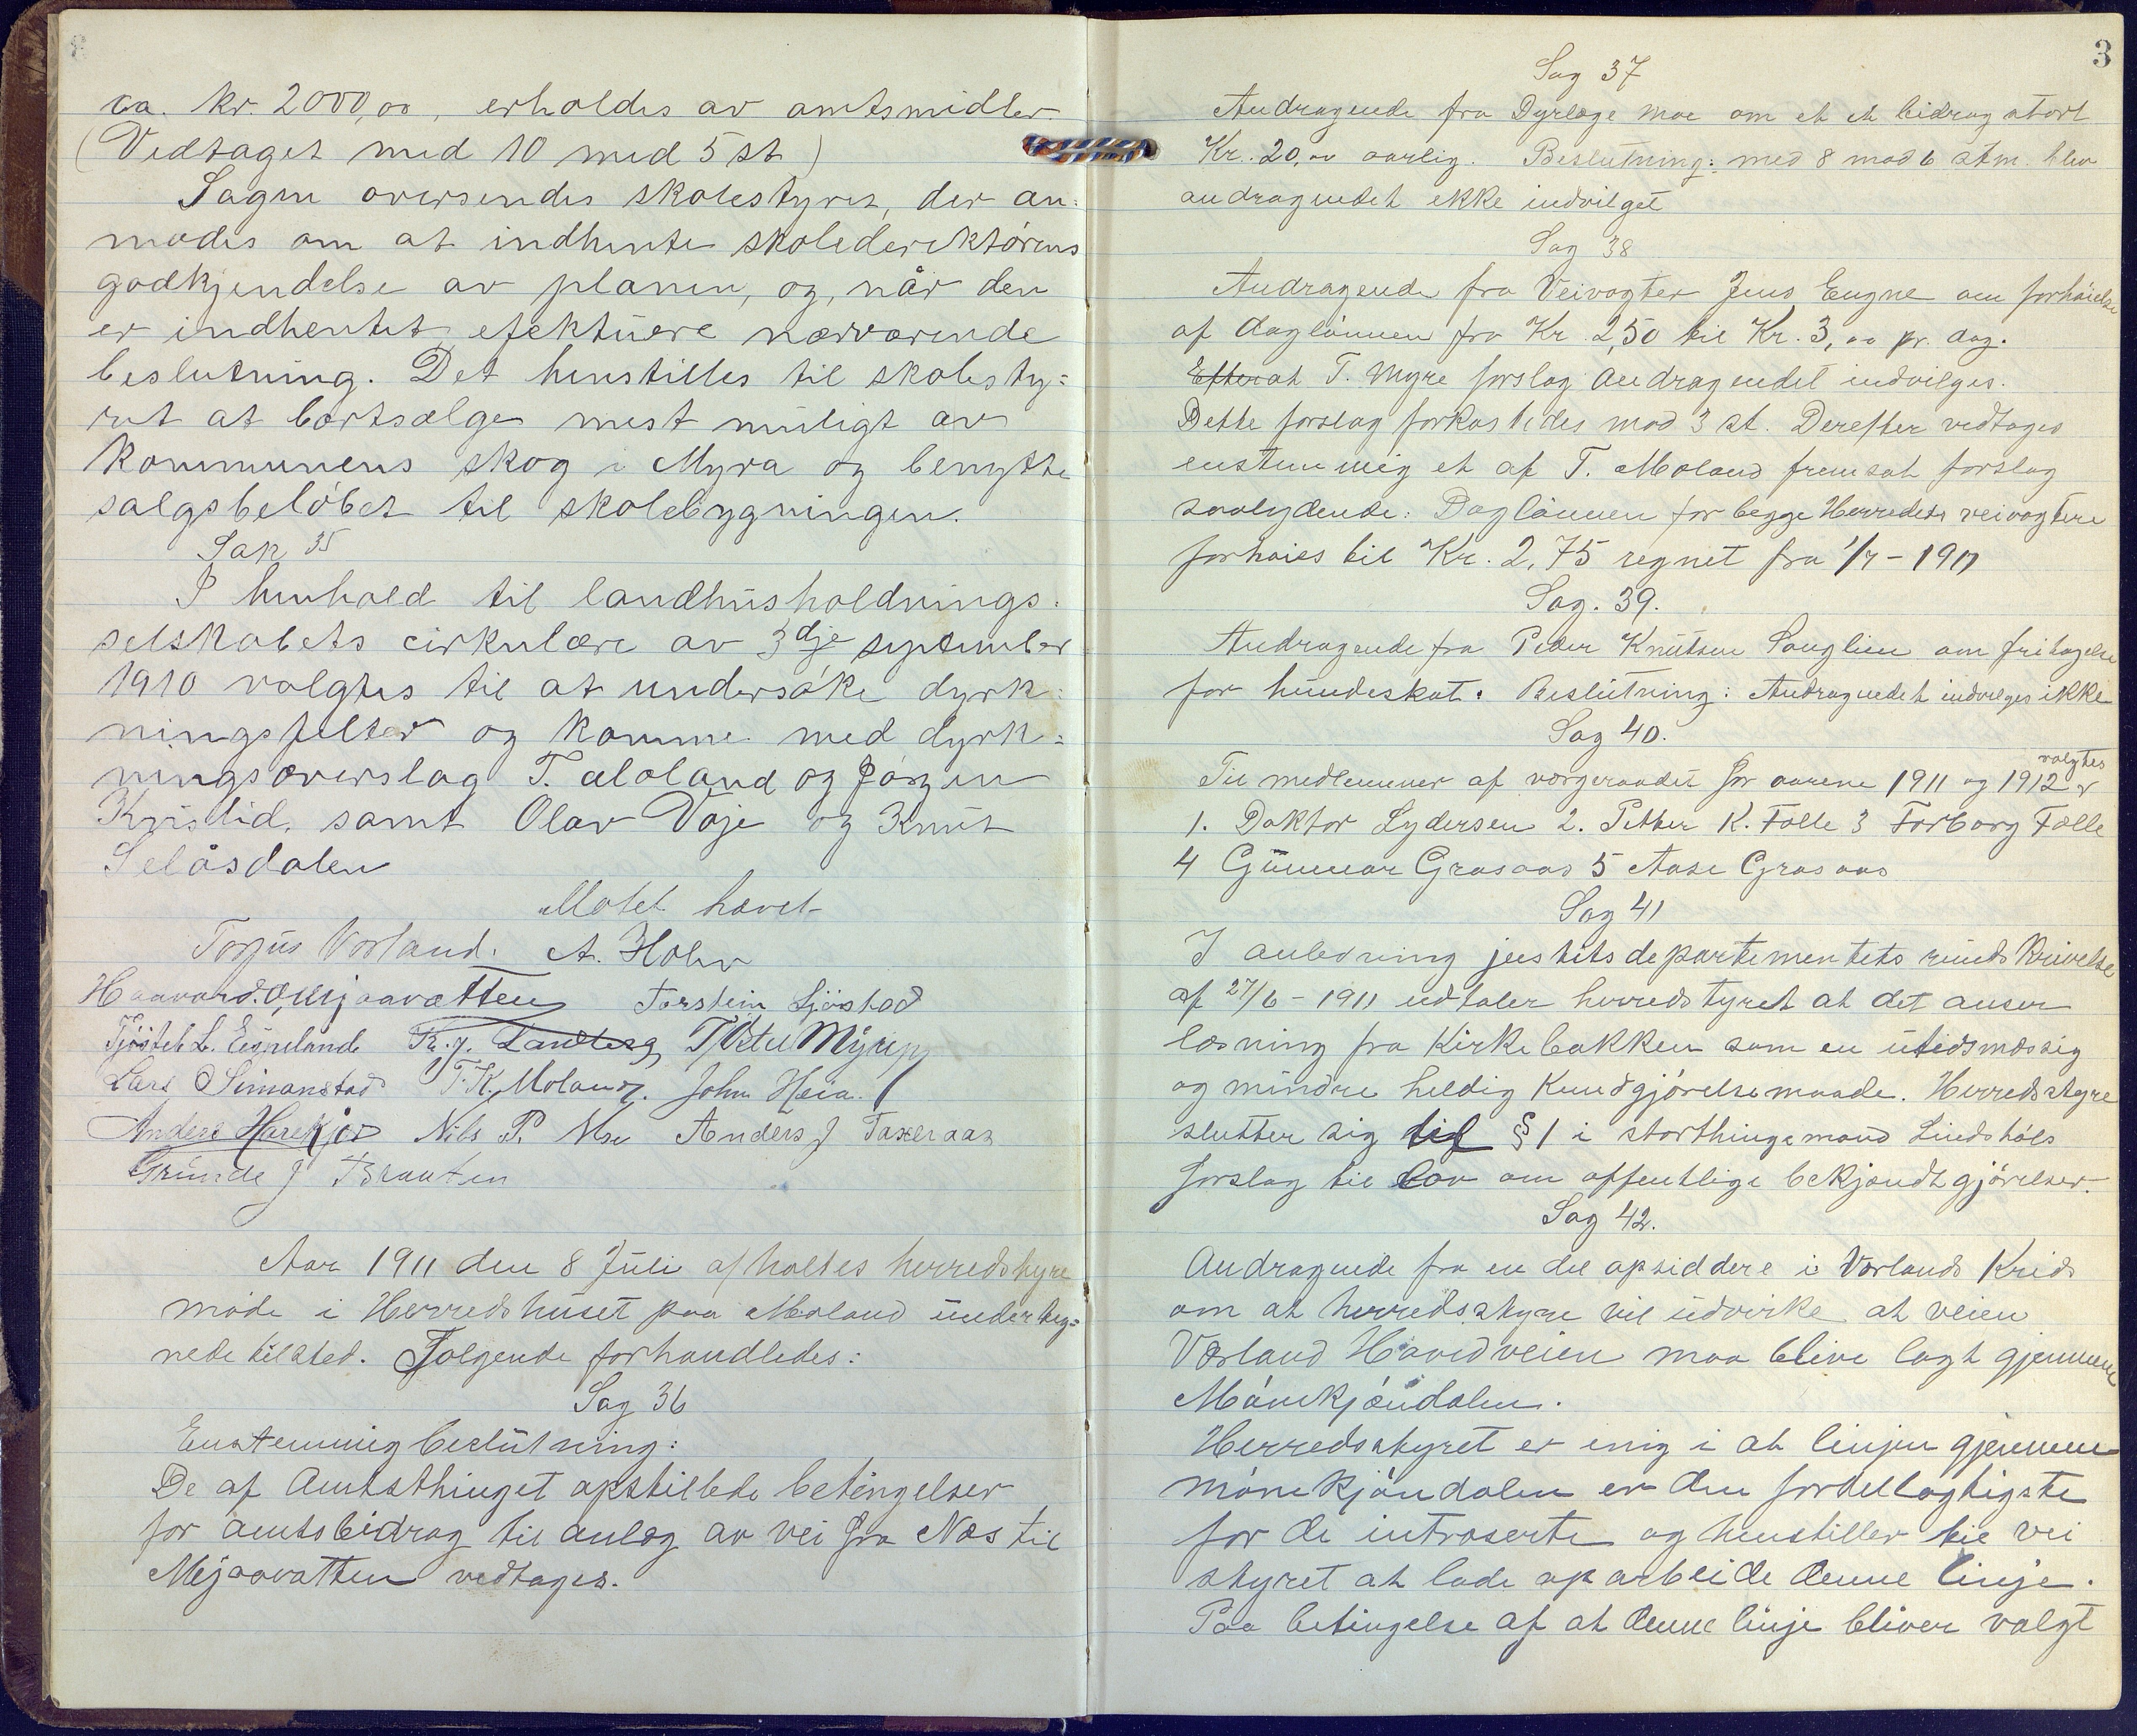 ca. kr. 2000,00, erholdes av amtsmidler
(Vedtaget med 10 mod 5 st)
Sagen oversendes skolestyret, der an-
modes om at indhente skolederektørens
godkjendelse av planen, og, når den
er indhentet, efektuere nærværende
beslutning. Det henstilles til skolesty=
ret at bortsælge mest muligt av
kommunens skog i Myra og benytte
salgsbeløbet til skolebygningen.
Sak 35
I henhold til landhusholdnings-
selskabets cirkulære av 3dje september
1910 valgtes til at undersøke dyrk=
ningsfelter og komme med dyrk=
ningsoverslag T. Moland og Jørgen
Kjristid, samt Olav Vøje og Knut
Selåsdalen
Møtet hævet
Torjus Vorland. A. Holm
Haavard. O. Mjaavatten Torstein Sjöstad
Tjöstel L. Egneland Kr. J. Landberg T. Ostel Myrup
Lars O Simonstad T. K. Moland. John Heia.
Anders Harekjær Nils P. Moe Anders J Taxeraas
Grunde J Braaten
Aar 1911 den 8 Juli afholtes herredstyre
møde i Herredshuset paa Moland underteg=
nede tilsted. Følgende forhandledes:
Sag 36
Enstemmig beslutning:
De af Amtsthinget opstillede betingelser
for amtsbidrag til anlæg av vei fra Næs til
Mjaavatten vedtages.
3
Sag 37
Andragende fra Dyrlæge Moe om et et bidrag stort
Kr. 20,00 aarlig. Beslutning: med 8 mod 6 stm. blev
andragendet ekke indvilget
Sag 38
Andragende fra Veivogter Jens Eugne om forhøielse
af daglønnen fra Kr. 2,50 til Kr. 3,00 pr. dag.
Efter at T. Myre forslag Andragendet indvilges.
Dette forslag forkastedes mod 3 st. Derefter vedtages
enstemmig et af T. Moland fremsat forslag
saalydende: Daglønnen for begge Herredets veivogtere
forhøies til Kr. 2,75 regnet fra 1/7 - 1911
Sag. 39.
Andragende fra Peder Knutsen Songlien om fritagelse
for hundeskat. Beslutning: Andragendet indvilges ikke
Sag 40.
Til medlemmer af værgeraadet for aarene 1911 og 1912 valgtes
1. Doktor Lydersen 2. Petter K. Følle 3 Torborg Følle
4 Gunnar Grasaas 5 Aase Grasaas
Sag 41
I anledning justitsdepartementets rundskrivelse
af 27/6 - 1911 udtaler herredstyret at det anser
læsning fra Kirkebakken som en utidsmæssig
og mindre heldig kundgjörelsemaade. Herredstyre
slutter sig til § 1 i storthingsmand Lindshøls
forslag til lov om offentlige bekjendtgjörelser.
Sag 42.
Andragende fra en del opsiddere i Vorlands Kreds
om at herredsstyre vil udvirke at veien
Vorland Høvedveien maa blive lagt gjennem
Mørekjøndalen.
Herredsstyret er enig i at linjen gjennem
mørekjøndalen er den fordellagtigste
for de intreserte og henstiller til vei
styret at lade oparbeide denne linje.
Paa betingelse af at denne linje bliver valgt